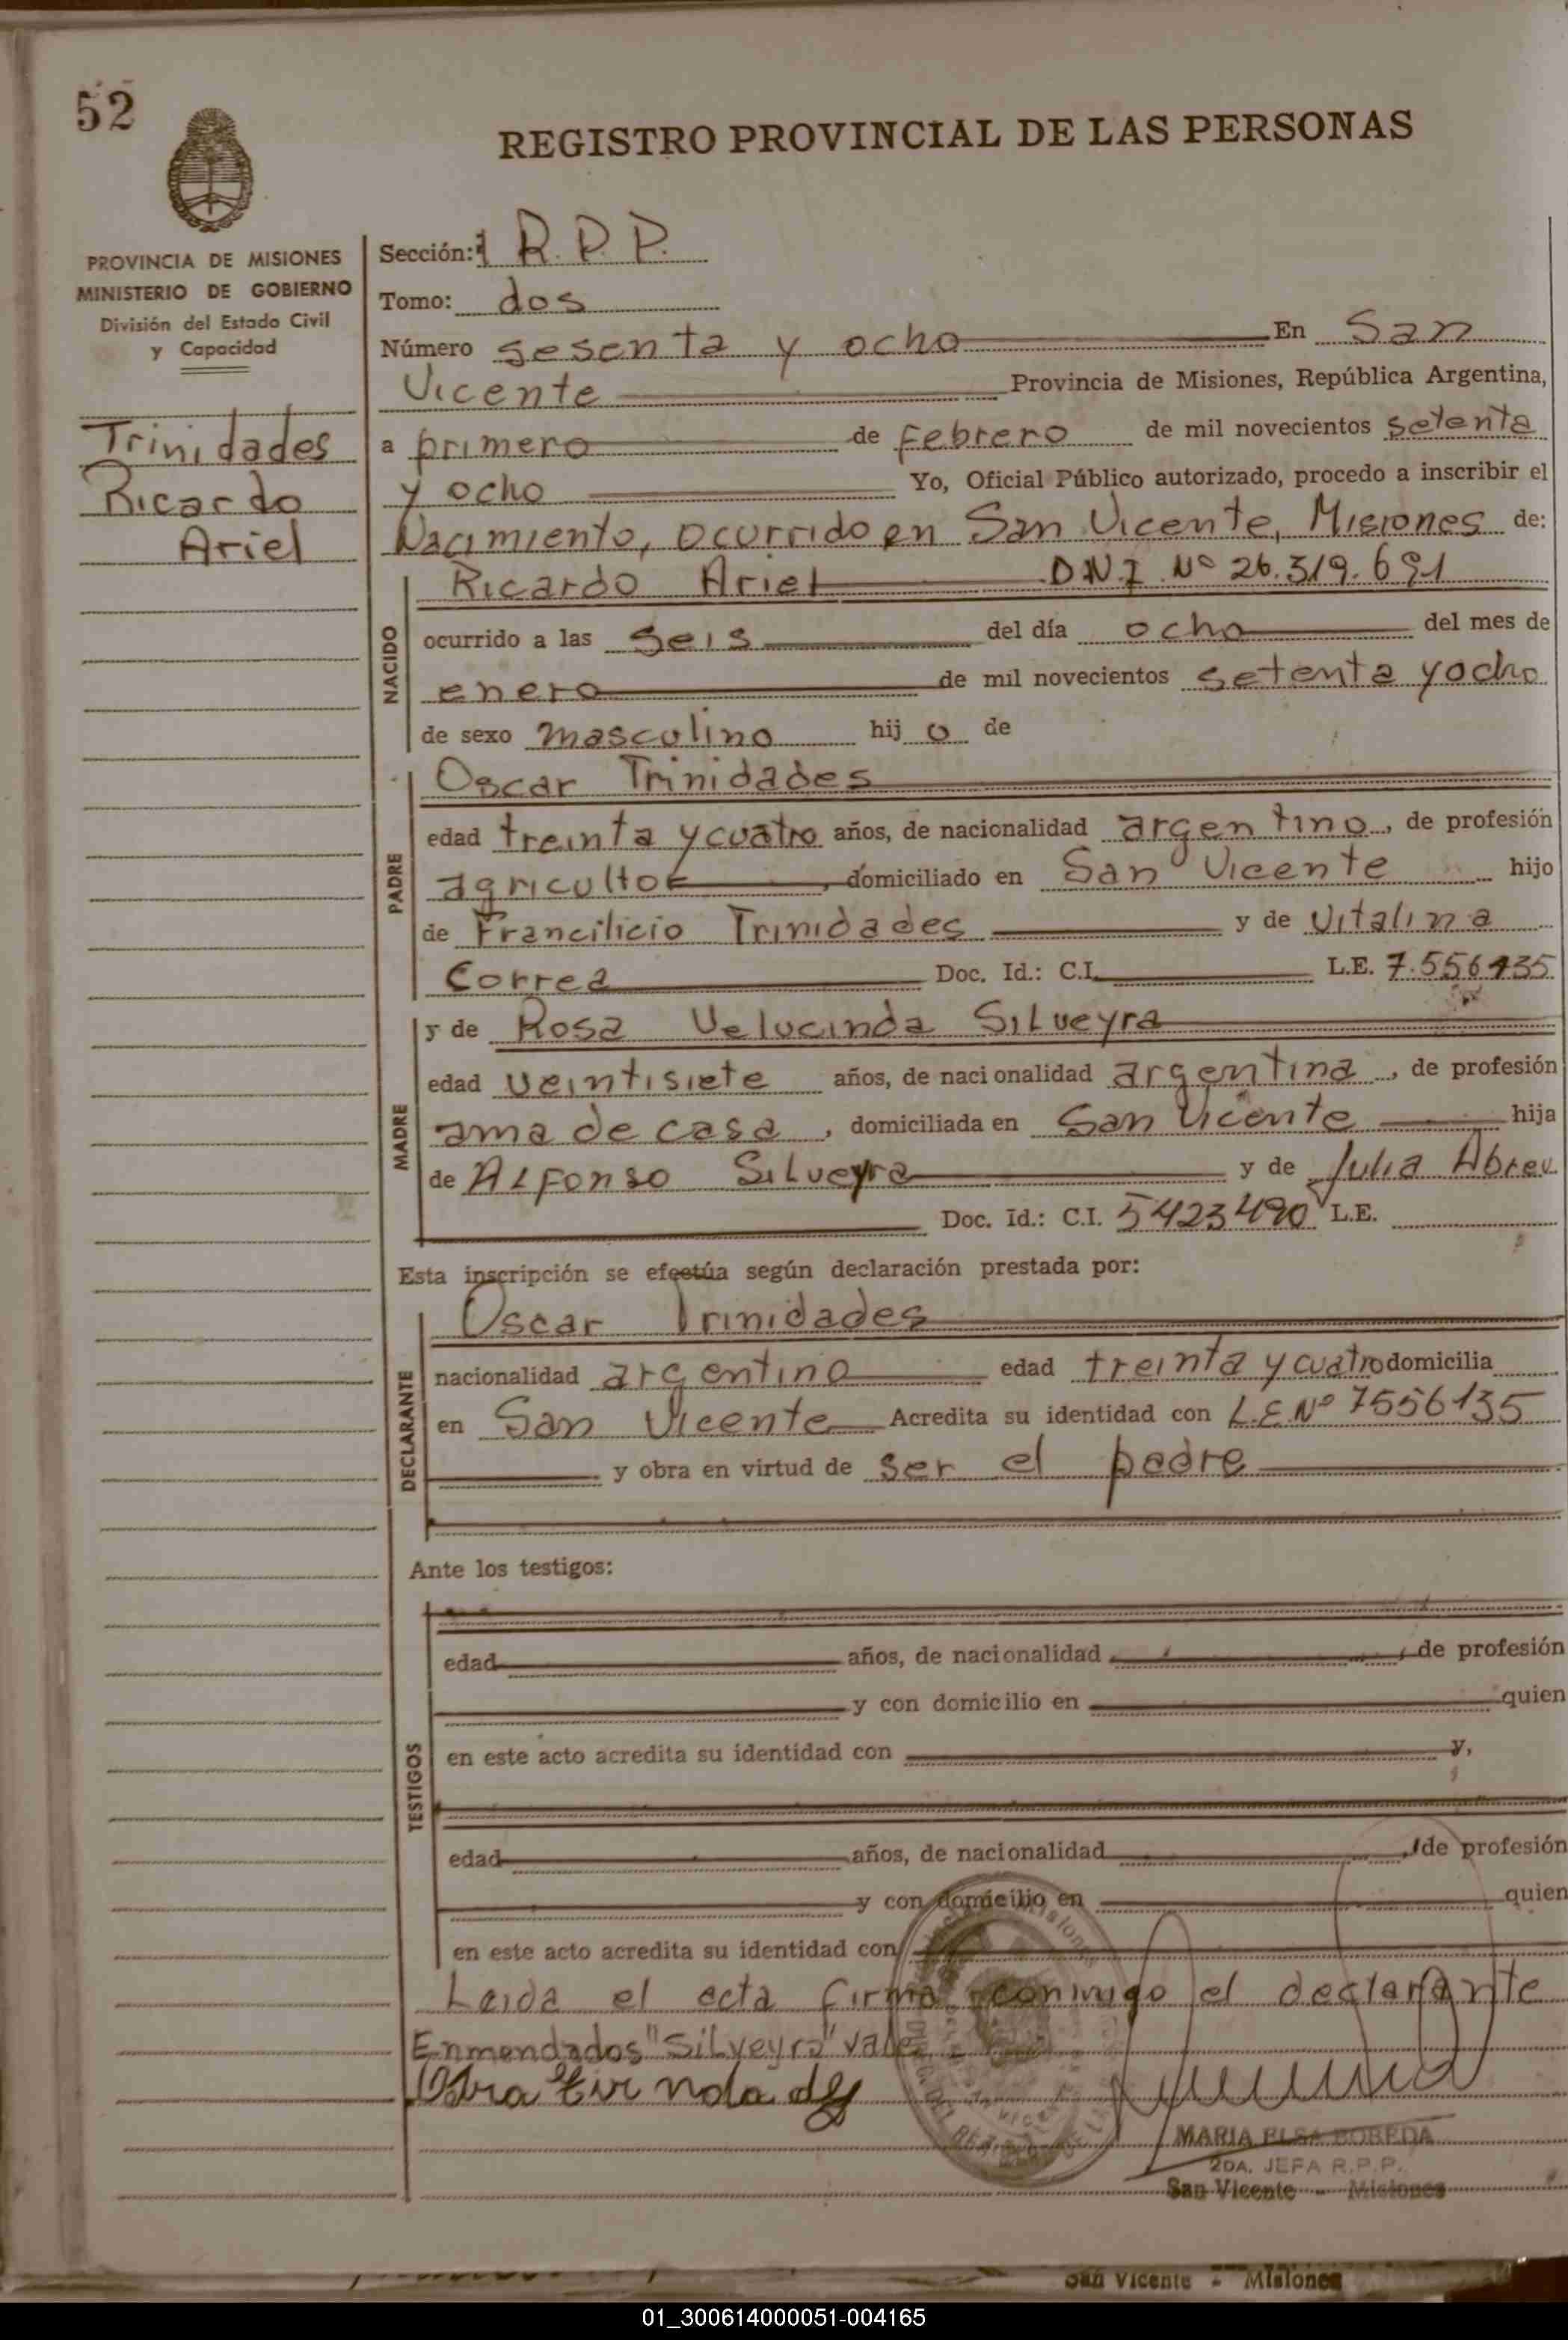 52
REGISTRO PROVINCIAL DE LAS PERSONAS
PROVINCIA DE MISIONES
MINISTERIO DE GOBIERNO
División del Estado Civil
y Capacidad
Trinidades
Ricardo
Ariel
Sección: 1 R.P.P.
Tomo: dos
Número sesenta y ocho En San
Vicente Provincia de Misiones, República Argentina,
a primero de febrero de mil novecientos setenta
y ocho Yo, Oficial Público autorizado, procedo a inscribir el
Nacimiento, ocurrido en San Vicente, Misiones de:
NACIDO
Ricardo Ariel D.N.I. Nº 26.319.691
ocurrido a las seis del día ocho del mes de
enero de mil novecientos setenta y ocho
de sexo masculino hijo de
PADRE
Oscar Trinidades
edad treinta y cuatro años, de nacionalidad argentino, de profesión
agricultor, domiciliado en San Vicente hijo
de Francilicio Trinidades y de Vitalina
Correa Doc. Id.: C.I. L.E. 7.556135
MADRE
y de Rosa Velucinda Silveyra
edad veintisiete años, de nacionalidad argentina, de profesión
ama de casa, domiciliada en San Vicente hija
de Alfonso Silveyra y de Julia Abreu
Doc. Id.: C.I. 5423490 L.E.
Esta inscripción se efectúa según declaración prestada por:
DECLARANTE
Oscar Trinidades
nacionalidad argentino edad treinta y cuatro domicilia
en San Vicente Acredita su identidad con L.E.Nº 7556135
y obra en virtud de ser el padre
Ante los testigos:
TESTIGOS
edad años, de nacionalidad , de profesión
y con domicilio en quien
en este acto acredita su identidad con y,
edad años, de nacionalidad , de profesión
y con domicilio en quien
en este acto acredita su identidad con
Leida el acta firma conmigo el declarante
Enmendados "Silveyra" vale
MARIA ELSA BOBEDA
2DA. JEFA R.P.P.
San Vicente - Misiones
San Vicente - Misiones
01_300614000051-004165